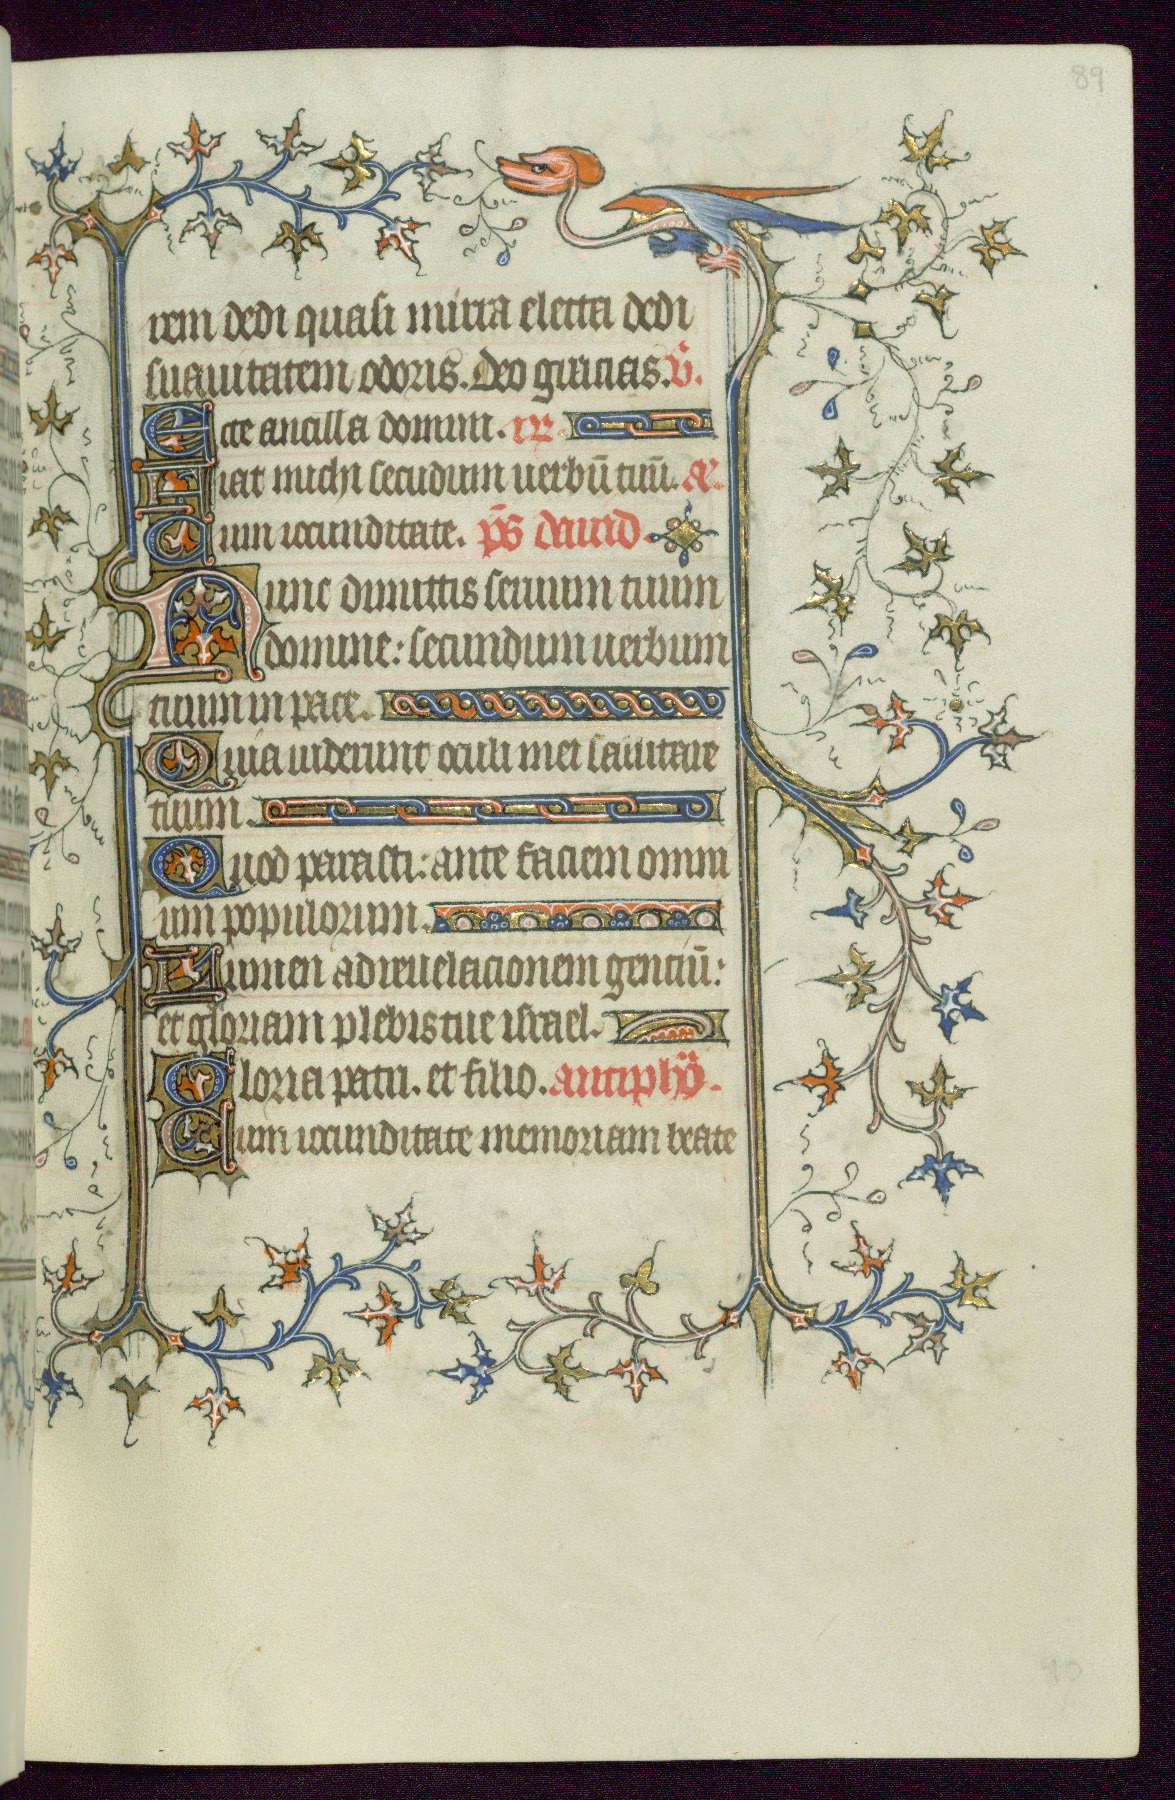 89
rem dedi quasi mirra electa dedi
suauitatem odoris. Deo gracias. v̄.
Ecce ancilla domini. rx.
Fiat michi secūdum uerbū tuū. añ.
Cum iocunditate. p̄s dauid.
Nunc dimittis seruum tuum
domine: secundum uerbum
tuum in pace.
Quia uiderunt oculi mei salutare
tuum.
Quod parasti: ante faciem omni
um populorum.
Lumen ad reuelacionem genciū:
et gloriam plebis tue israel.
Gloria patri. et filio. antiphō.
Cum iocunditate memoriam beate
90